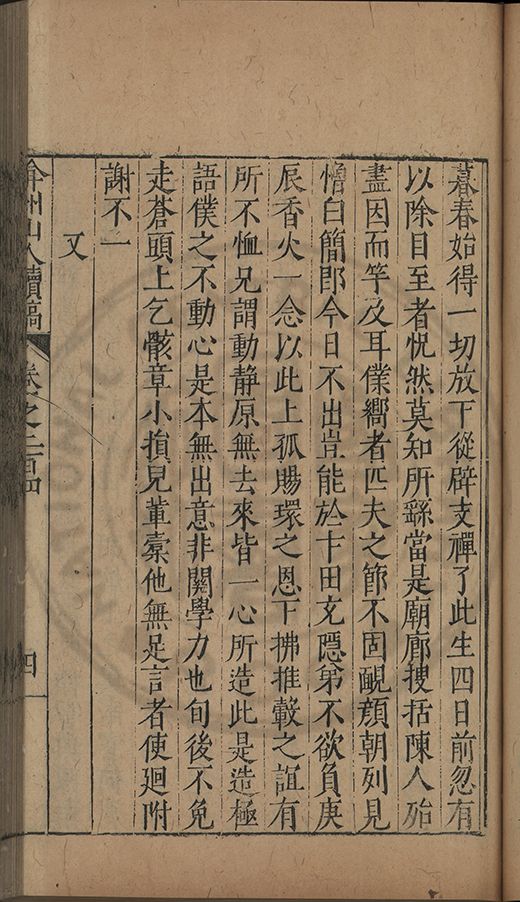 暮春始得一切放下從辟支禪了此生四日前忽有
以除目至者怳然莫知所繇當是廟廊搜括陳人殆
盡因而竿及耳僕嚮者匹夫之節不固靦顏朝列見
憎白簡卽今日不出豈能於卞田文隱第不欲負庚
辰香火一念以此上孤賜環之恩下拂推轂之誼有
所不恤兄謂動静原無去來皆一心所造此是造極
語僕之不動心是本無出意非關學力也旬後不免
走蒼頭上乞骸章小損兄葷槖他無足言者使廻附
謝不一
又
弇州山人續稿 卷之二百四 四